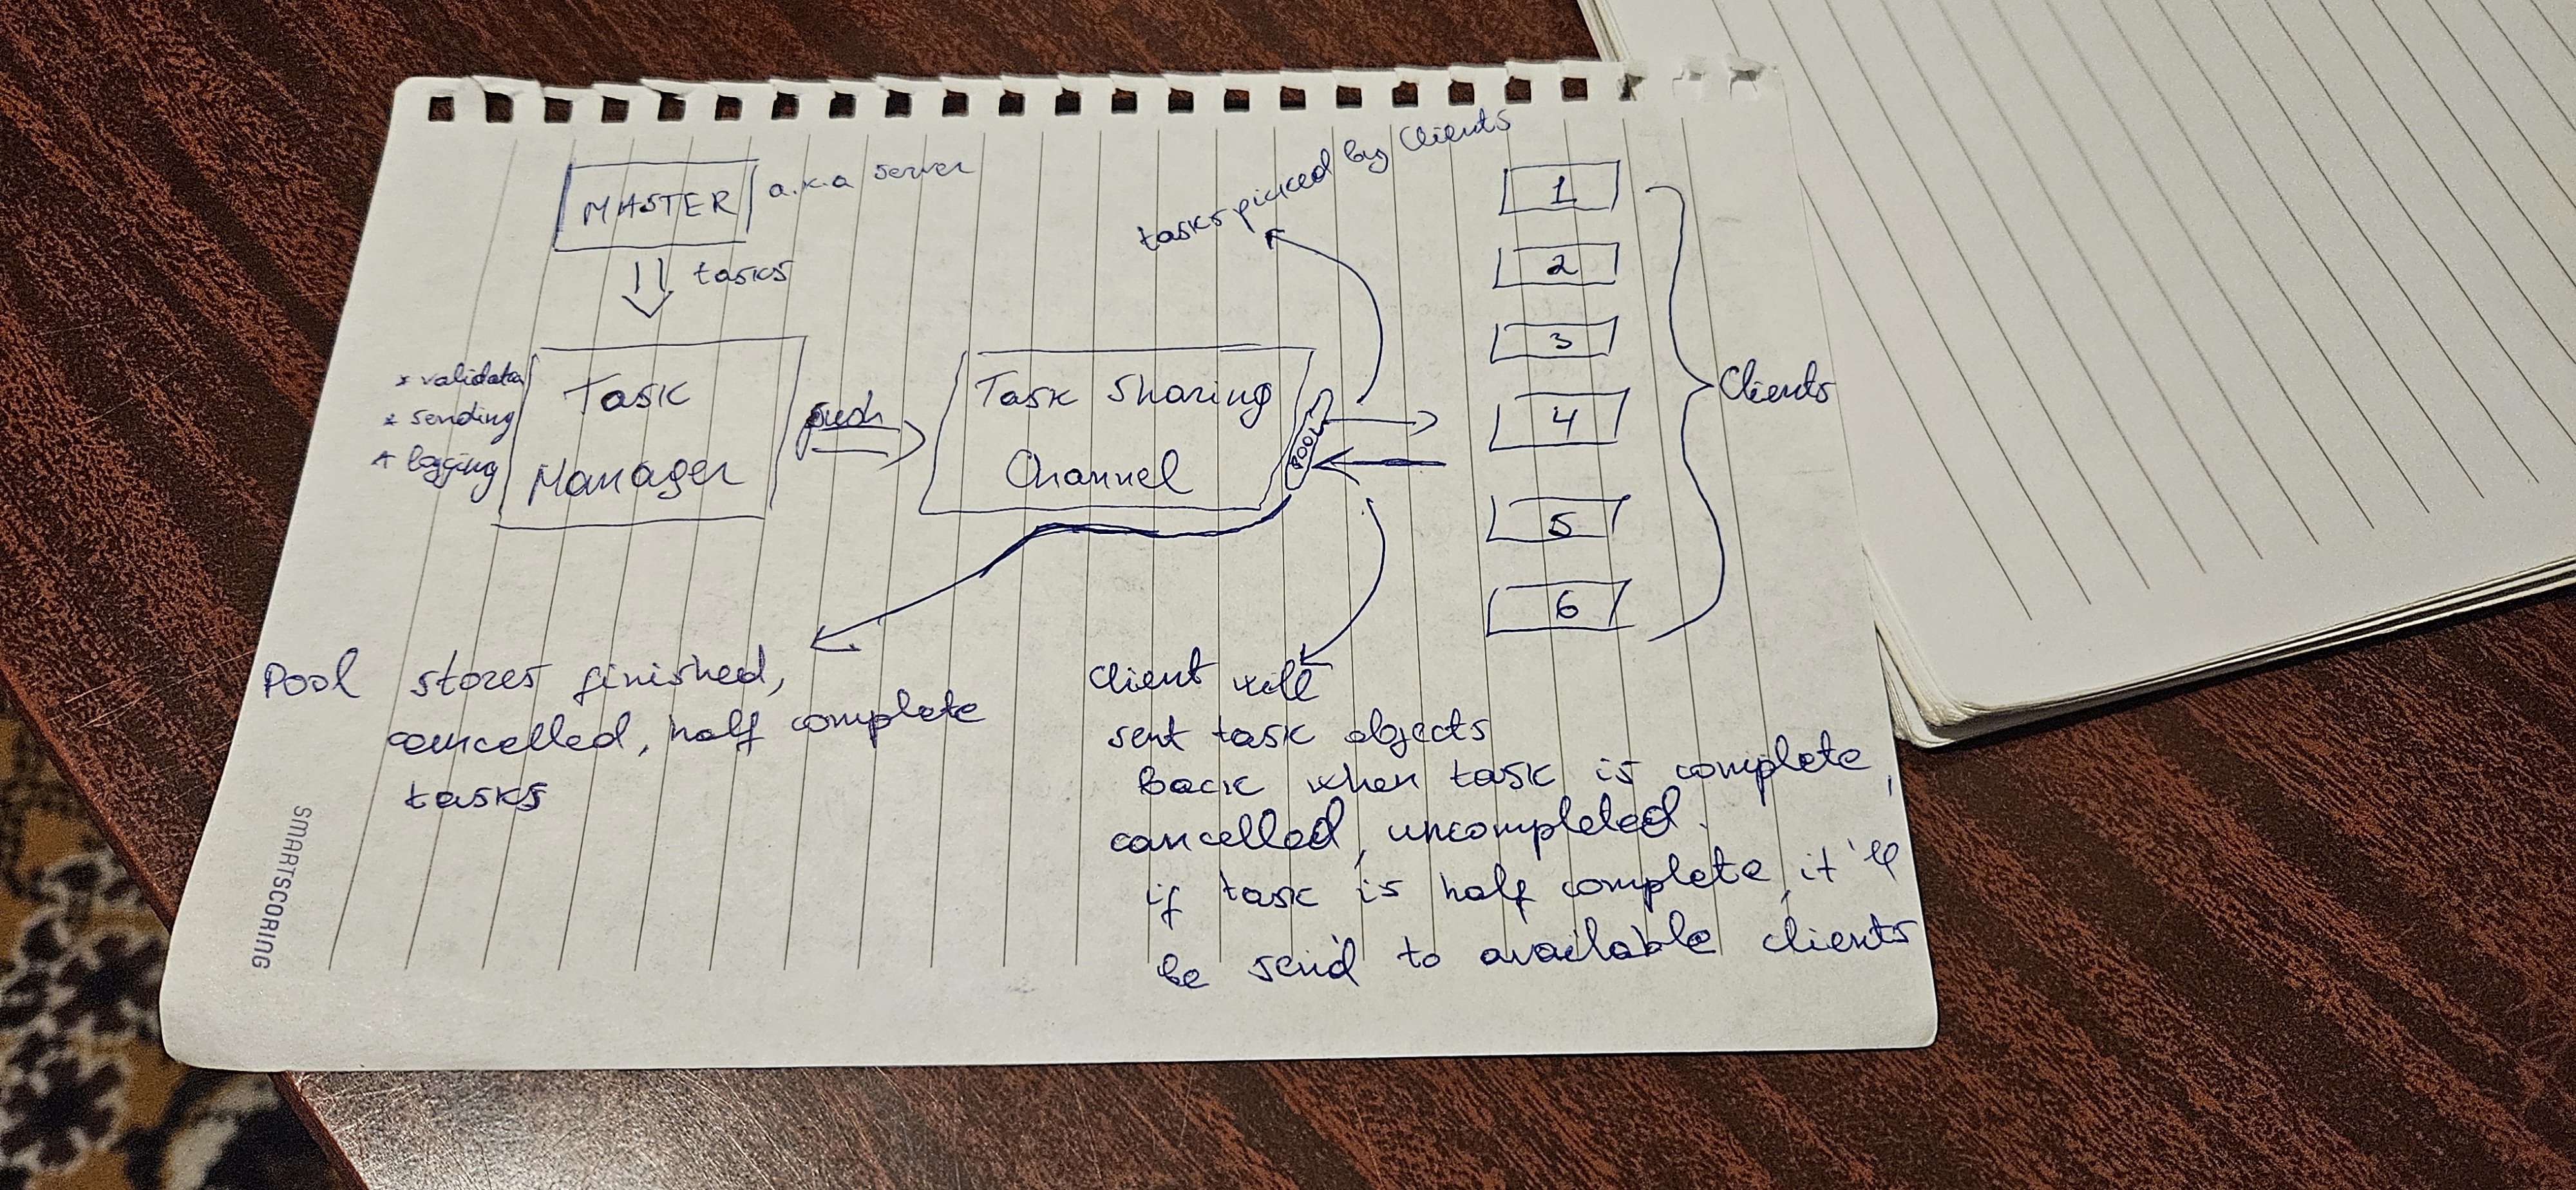 MASTER a.k.a server
tasks
* validate
* sending
* logging
Task
Manager
push
Task Sharing
Channel
pool
tasks picked by Clients
1
2
3
4
5
6
Clients
Pool stores finished,
cancelled, half complete
tasks
client will
sent task objects
back when task is complete,
cancelled uncompleted,
if task is half complete, it'll
be send to available clients
SMARTSCORING